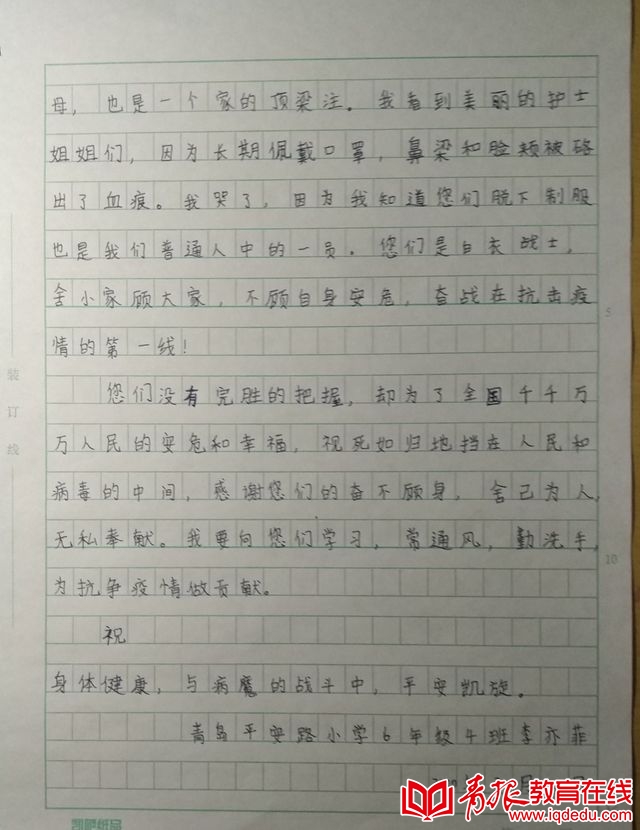 母，也是一个家的顶梁注。我看到美丽的护士
姐姐们，因为长期佩戴口罩，鼻梁和脸颊被硌
出了血痕。我哭了，因为我知道您们脱下制服
也是我们普通人中的一员。您们是白衣战士，
舍小家顾大家，不顾自身安危，奋战在抗击疫
情的第一线！
您们没有完胜的把握，却为了全国千千万
万人民的安危和幸福，视死如归地挡在人民和
病毒的中间，感谢您们的奋不顾身，舍己为人，
无私奉献。我要向您们学习，常通风，勤洗手，
为抗争疫情做贡献。
祝
身体健康，与病魔的战斗中，平安凯旋。
青岛平安路小学6年级4班李亦菲
装订线
5
10
青报教育在线
www.iqdedu.com